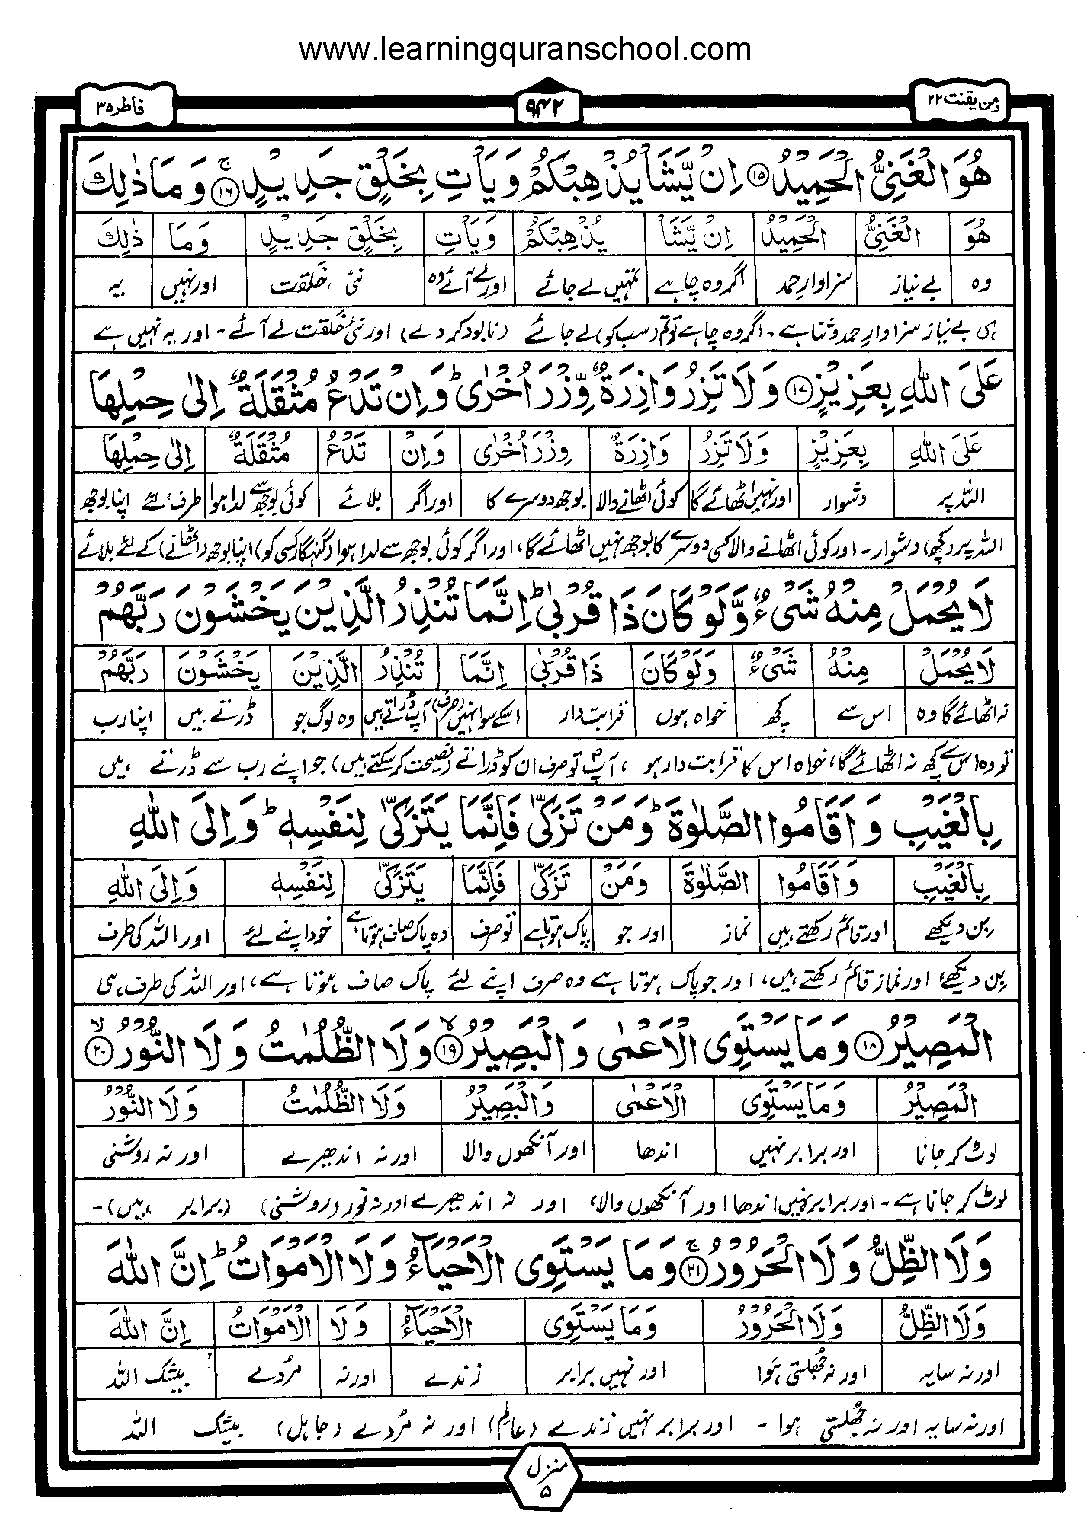 www.learningquranschool.com
ومن یقنت ۲۲
۹۴۲
فاطر ۳۵
هُوَ الْغَنِیُّ الْحَمِیْدُ ۝۱۵ اِنْ یَّشَاْ یُذْهِبْكُمْ وَ یَاْتِ بِخَلْقٍ جَدِیْدٍ ۝۱۶ۚ وَ مَا ذٰلِكَ
هُوَ الْغَنِیُّ الْحَمِیْدُ اِنْ یَّشَاْ یُذْهِبْكُمْ وَ یَاْتِ بِخَلْقٍ جَدِیْدٍ وَ مَا ذٰلِكَ
وہ بے نیاز سزاوارِ حمد اگر وہ چاہے تمہیں لے جائے اور لے آئے وہ نئی خلقت اور نہیں یہ
ہی بے نیاز سزاوارِ حمد وثنا ہے۔ اگر وہ چاہے تو تم (سب کو) لے جائے (نابود کر دے) اور نئی خلقت لے آئے۔ اور یہ نہیں ہے
عَلَى اللّٰهِ بِعَزِیْزٍ ۝۱۷ وَ لَا تَزِرُ وَازِرَةٌ وِّزْرَ اُخْرٰىؕ وَ اِنْ تَدْعُ مُثْقَلَةٌ اِلٰى حِمْلِهَا
عَلَى اللّٰهِ بِعَزِیْزٍ وَ لَا تَزِرُ وَازِرَةٌ وِزْرَ اُخْرٰى وَ اِنْ تَدْعُ مُثْقَلَةٌ اِلٰى حِمْلِهَا
اللہ پر دشوار اور نہیں اٹھائے گا کوئی اٹھانے والا بوجھ دوسرے کا اور اگر بلائے کوئی بوجھ سے لدا ہوا طرف لئے اپنا بوجھ
اللہ پر (کچھ) دشوار۔ اور کوئی اٹھانے والا کسی دوسرے کا بوجھ نہیں اٹھائے گا، اور اگر کوئی بوجھ سے لدا ہوا (گنہگار کسی کو) اپنا بوجھ (اٹھانے) کے لئے بلائے
لَا یُحْمَلْ مِنْهُ شَیْءٌ وَّ لَوْ كَانَ ذَا قُرْبٰىؕ اِنَّمَا تُنْذِرُ الَّذِیْنَ یَخْشَوْنَ رَبَّهُمْ
لَا یُحْمَلْ مِنْهُ شَیْءٌ وَ لَوْ كَانَ ذَا قُرْبٰى اِنَّمَا تُنْذِرُ الَّذِیْنَ یَخْشَوْنَ رَبَّهُمْ
نہ اٹھائے گا وہ اس سے کچھ خواہ ہوں قرابت دار اسکے سوا نہیں (صرف) آپؐ ڈراتے ہیں وہ لوگ جو ڈرتے ہیں اپنا رب
تو وہ اس سے کچھ نہ اٹھائے گا، خواہ اس کا قرابت دار ہو، آپؐ تو صرف ان کو ڈراتے (نصیحت کر سکتے ہیں) جو اپنے رب سے ڈرتے ہیں
بِالْغَیْبِ وَ اَقَامُوا الصَّلٰوةَؕ وَ مَنْ تَزَكّٰى فَاِنَّمَا یَتَزَكّٰى لِنَفْسِهٖؕ وَ اِلَى اللّٰهِ
بِالْغَیْبِ وَ اَقَامُوا الصَّلٰوةَ وَ مَنْ تَزَكّٰى فَاِنَّمَا یَتَزَكّٰى لِنَفْسِهٖ وَ اِلَى اللّٰهِ
بن دیکھے اور قائم رکھتے ہیں نماز اور جو پاک ہوتا ہے تو صرف وہ پاک صاف ہوتا ہے خود اپنے لئے اور اللہ کی طرف
بن دیکھے، اور نماز قائم رکھتے ہیں، اور جو پاک ہوتا ہے وہ صرف اپنے لئے پاک صاف ہوتا ہے، اور اللہ کی طرف ہی
الْمَصِیْرُ ۝۱۸ وَ مَا یَسْتَوِی الْاَعْمٰى وَ الْبَصِیْرُ ۝۱۹ۙ وَ لَا الظُّلُمٰتُ وَ لَا النُّوْرُ ۝۲۰ۙ
الْمَصِیْرُ وَ مَا یَسْتَوِی الْاَعْمٰى وَ الْبَصِیْرُ وَ لَا الظُّلُمٰتُ وَ لَا النُّوْرُ
لوٹ کر جانا اور برابر نہیں اندھا اور آنکھوں والا اور نہ اندھیرے اور نہ روشنی
لوٹ کر جانا ہے۔ اور برابر نہیں اندھا اور آنکھوں والا، اور نہ اندھیرے اور نہ نور (روشنی) (برابر ہیں)۔
وَ لَا الظِّلُّ وَ لَا الْحَرُوْرُ ۝۲۱ۚ وَ مَا یَسْتَوِی الْاَحْیَآءُ وَ لَا الْاَمْوَاتُؕ اِنَّ اللّٰهَ
وَ لَا الظِّلُّ وَ لَا الْحَرُوْرُ وَ مَا یَسْتَوِی الْاَحْیَآءُ وَ لَا الْاَمْوَاتُ اِنَّ اللّٰهَ
اور نہ سایہ اور نہ جھلستی ہوا اور نہیں برابر زندے اور نہ مُردے بیشک اللہ
اور نہ سایہ اور نہ جھلستی ہوا۔ اور برابر نہیں زندے (عالم) اور نہ مُردے (جاہل) بیشک اللہ
منزل
۵